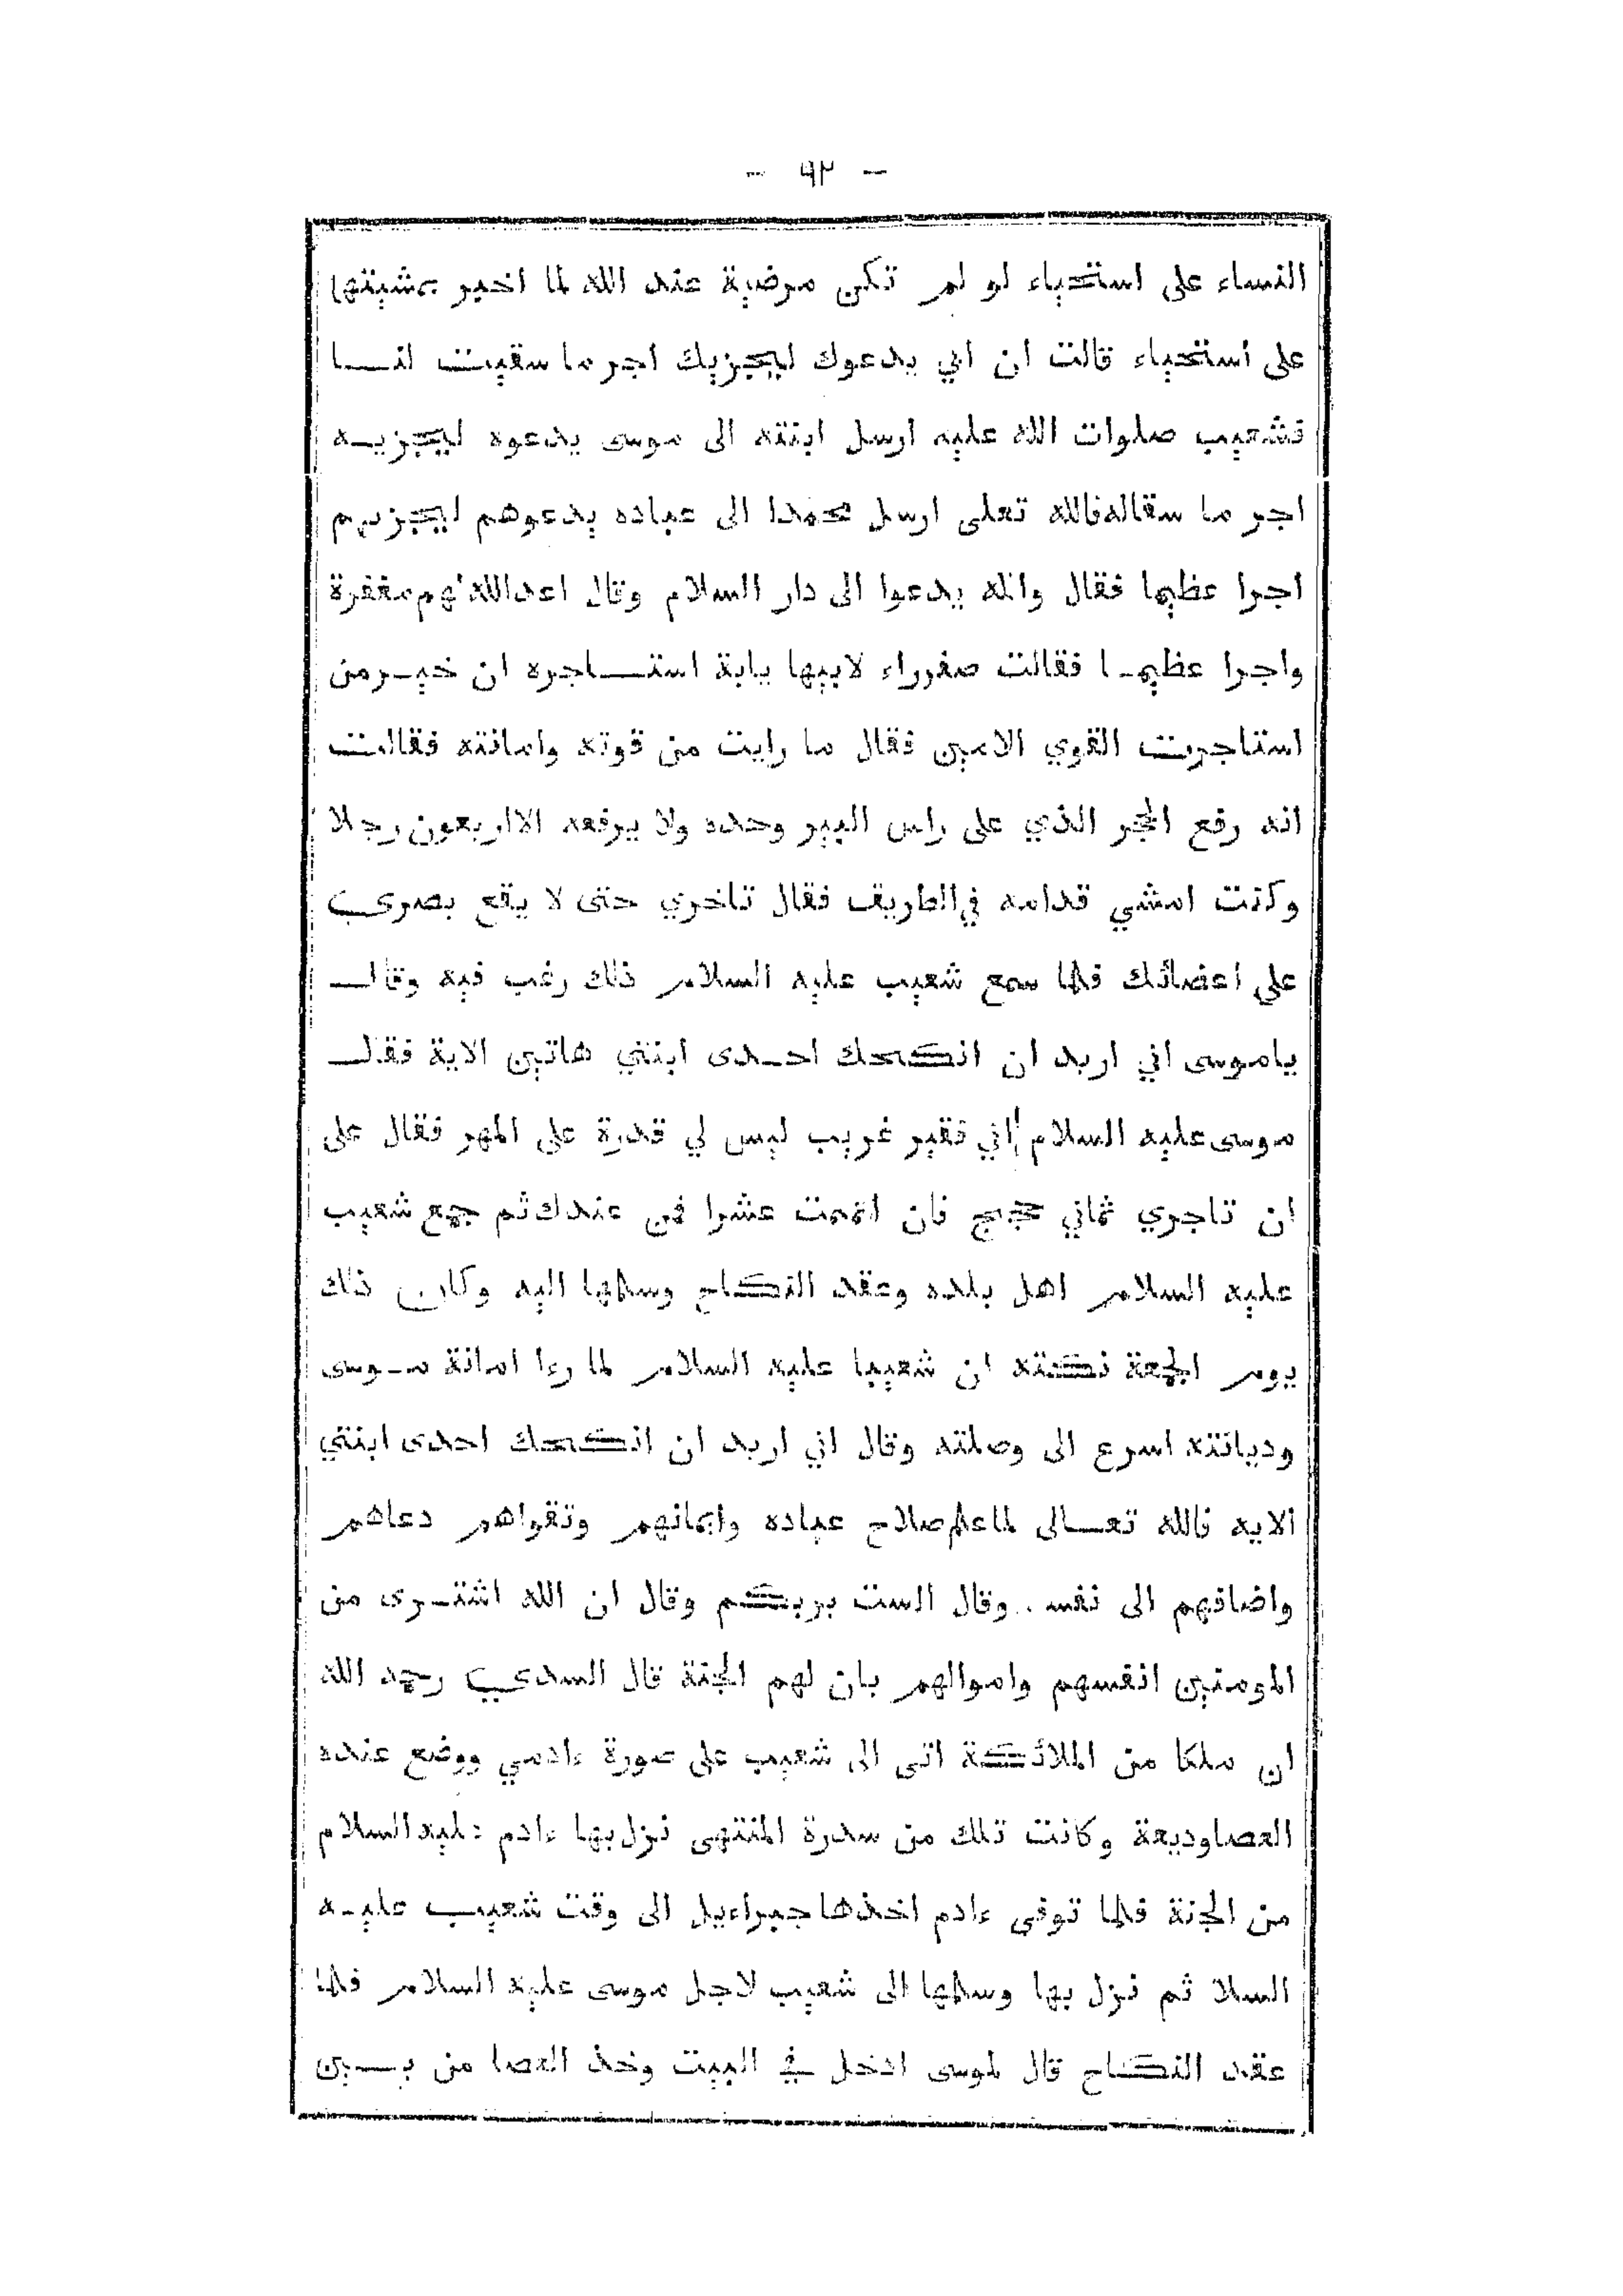 - ٩٢ -
النساء على استحياء لو لم تكن مرضية عند الله لما اخبر بمشيتها
على استحياء قالت ان ابي يدعوك ليجزيك اجر ما سقيت لنا
فشعيب صلوات الله عليه ارسل ابنته الى موسى يدعوه ليجزيه
اجر ما سقاله فالله تعلى ارسل محمدا الى عباده يدعوهم ليجزيهم
اجرا عظيما فقال والله يدعوا الى دار السلام وقال اعد الله لهم مغفرة
واجرا عظيما فقالت صفوراء لابيها يابة استاجره ان خير من
استاجرت القوي الامين فقال ما رايت من قوته وامانته فقالت
انه رفع الحجر الذي على راس البير وحده ولا يرفعه الا اربعون رجلا
وكنت امشي قدامه في الطريق فقال تاخري حتى لا يقع بصري
على اعضائك فلما سمع شعيب عليه السلام ذلك رغب فيه وقال
ياموسى اني اريد ان انكحك احدى ابنتي هاتين الاية فقال
موسى عليه السلام اني فقير غريب ليس لي قدرة على المهر فقال على
ان تاجري ثماني حجج فان اتممت عشرا فمن عندك ثم جمع شعيب
عليه السلام اهل بلده وعقد النكاح وسلمها اليه وكان ذلك
يوم الجمعة نكتته ان شعيبا عليه السلام لما رءا امانة موسى
وديانته اسرع الى وصلته وقال اني اريد ان انكحك احدى ابنتي
الايه فالله تعالى لما علم صلاح عباده وايمانهم وتقواهم دعاهم
واضافهم الى نفسه وقال الست بربكم وقال ان الله اشترى من
المومنين انفسهم واموالهم بان لهم الجنة قال السدي رحمه الله
ان ملكا من الملائكة اتى الى شعيب على صورة ءادمي ووضع عنده
العصا وديعة وكانت تلك من سدرة المنتهى نزل بها ءادم عليه السلام
من الجنة فلما توفى ءادم اخذها جبراءيل الى وقت شعيب عليه
السلا ثم نزل بها وسلمها الى شعيب لاجل موسى عليه السلام فلما
عقد النكاح قال لموسى ادخل في البيت وخذ العصا من بين